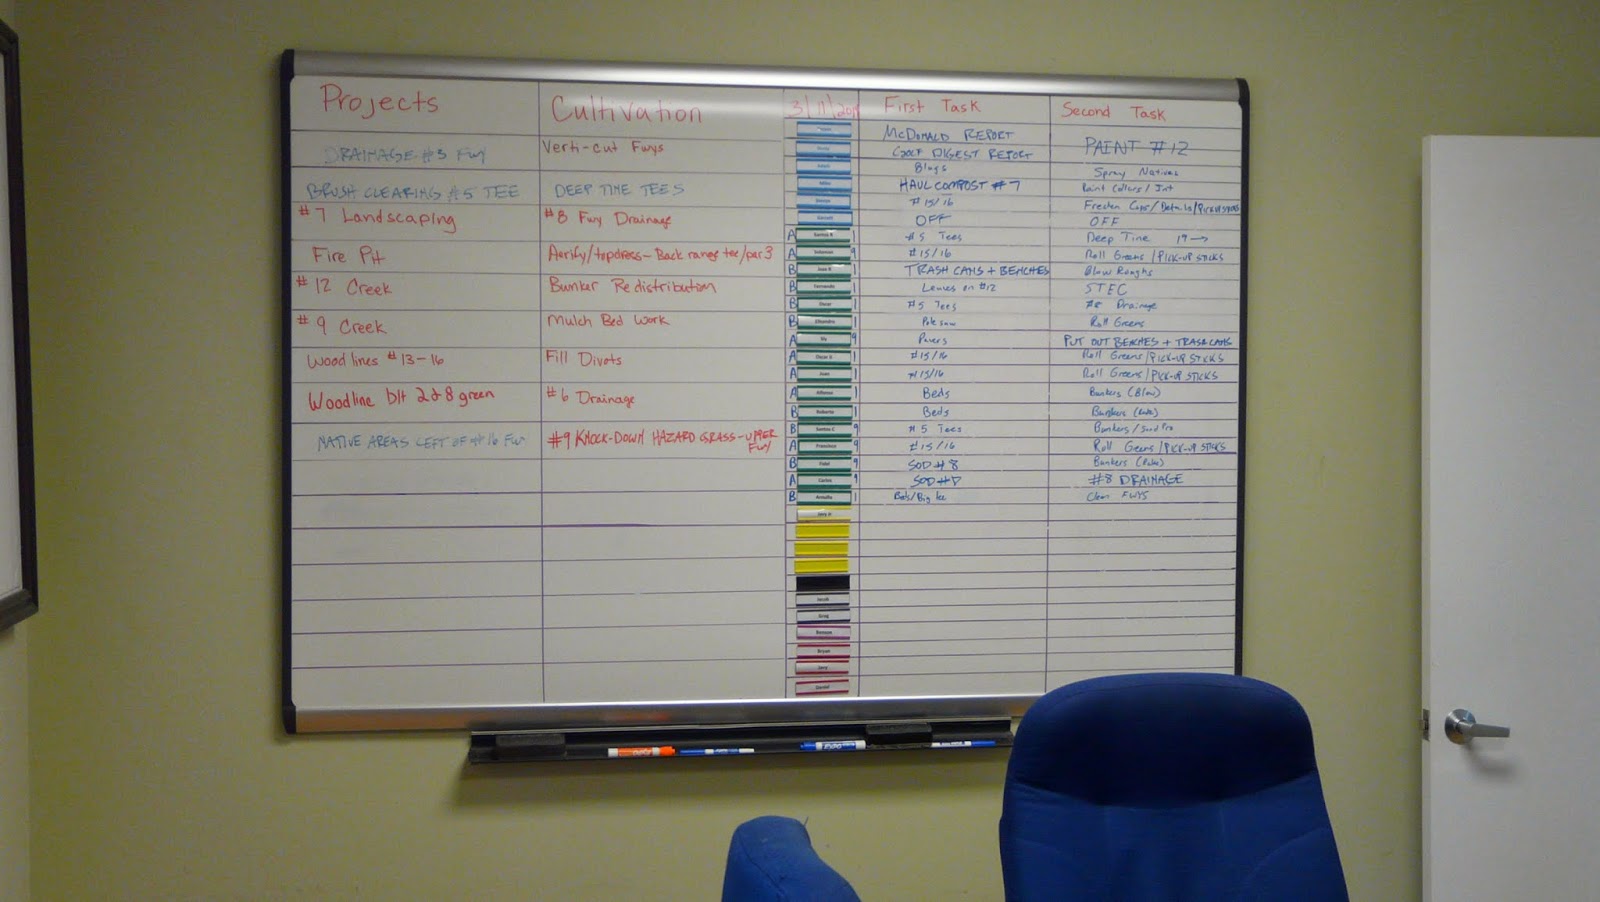 Projects Cultivation 3/11/ First Task Second Task
McDONALD REPORT
DRAINAGE #3 FWY Verti-cut Fwys GOLF DIGEST REPORT PAINT #12
Blogs Spray Natives
BRUSH CLEARING #5 TEE DEEP TINE TEES Mike HAUL COMPOST #7 Paint Collars/Int
#15/16 Freeten Cups/Details/PICKUP STICKS
#7 Landscaping #8 Fwy Drainage OFF OFF
A 1 #5 Tees Deep Tine 19→
Fire Pit Aerify/topdress-Back range tee/par 3 A 9 #15/16 Roll Greens/PICK-UP STICKS
B Juan R 1 TRASH CANS + BENCHES Blow Roughs
#12 Creek Bunker Redistribution B Fernando 1 Leaves on #12 STEC
B Oscar 1 #5 Tees #8 Drainage
#9 Creek Mulch Bed Work B 1 Pole saw Roll Greens
A 9 Pavers PUT OUT BENCHES + TRASH CANS
Wood lines #13-16 Fill Divots A 1 #15/16 Roll Greens/PICK-UP STICKS
A Juan 1 #15/16 Roll Greens/PICK-UP STICKS
Woodline btt 2 & 8 green #6 Drainage A Alfonso 1 Beds Bunkers (Blow)
B Roberto 1 Beds Bunkers (Rake)
B Santos C 9 #5 Tees Bunkers/Sand Pro
NATIVE AREAS LEFT OF #16 FWY #9 KNOCK-DOWN HAZARD GRASS-UPPER FWY A Francisco 9 #15/16 Roll Greens/PICK-UP STICKS
B Fidel 9 SOD #8 Bunkers (Rake)
A Carlos 9 SOD #8 DRAINAGE
B Arnulfo 1 Clean FWYS
Jacob
Greg
Bryan
Jerry
Daniel
EXPO